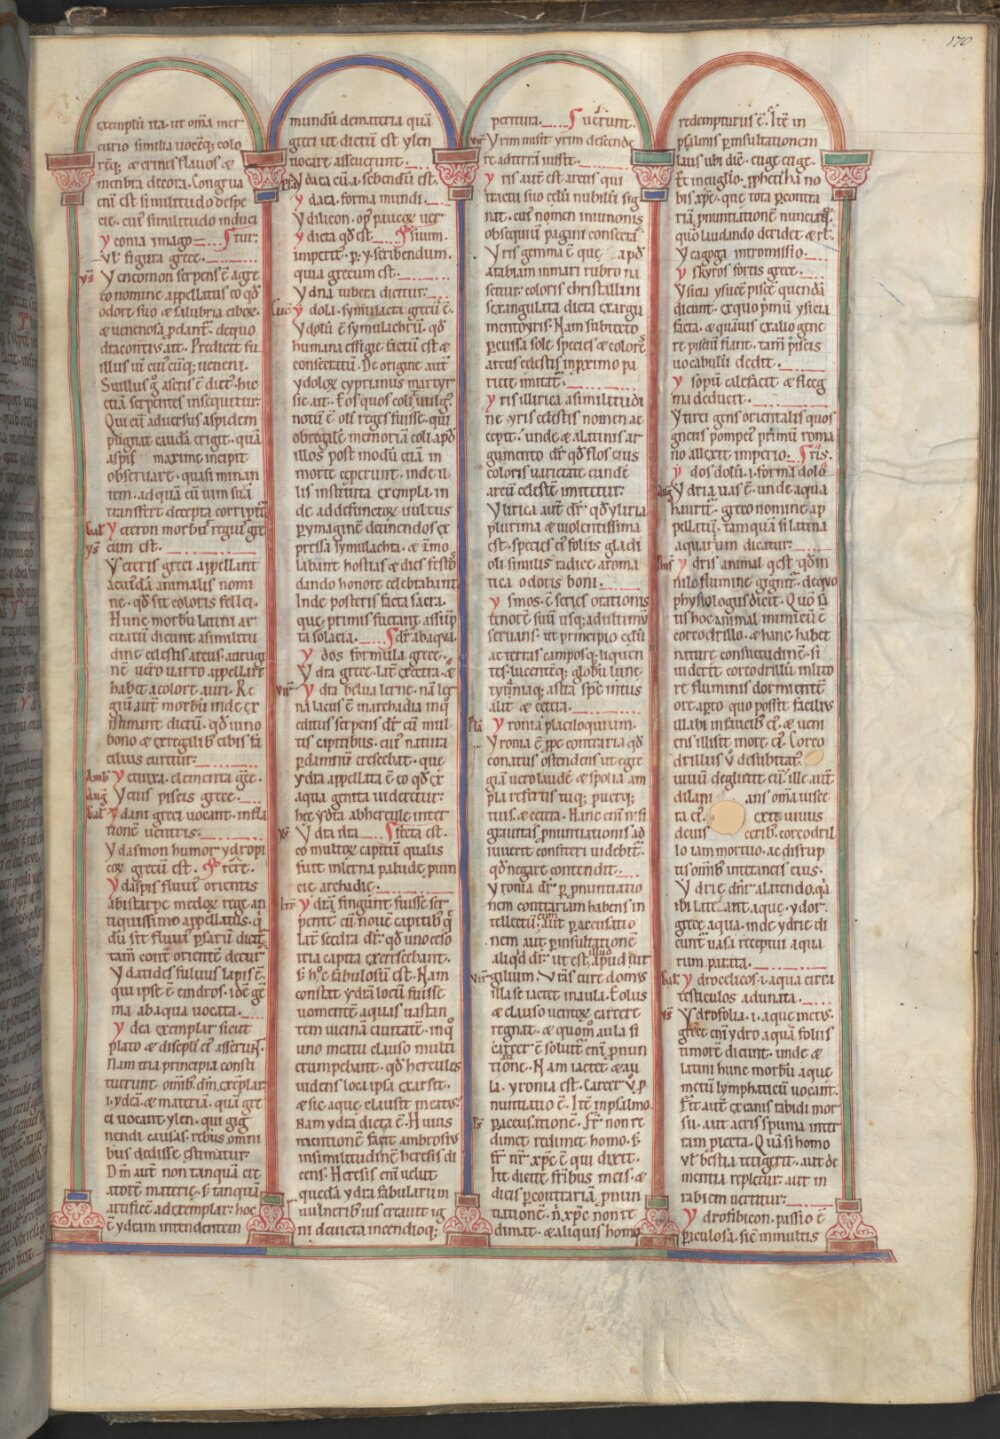 170
exemplũ ita. ut om̃a mer
curio similia uocẽq; colo
rẽq; & crines flauos &
menbra decora. Congrua
enĩ est similitudo despe
cie. cui similitudo induci
Y conia imago
t̃ figura grece.
Y encomon serpens ẽ agre
co nomine appellatus eo qđ
odore suo & salubria cibos
& uenenosa ꝓdant̃. dequo
dracontius ait. Predicit su
illus uĩ cuiꝰ cuiꝙ; ueneni.
que cũ aduersus aspidem
pugnat cauda erigit. quã
aspis maxime incipit
obseruare. quasi minan
tem. ad quã cũ uim suã
transfert decepta corripit̃
Y cteron morbuĩ reguĩ gre
cum est.
Y cteris greci appellant
acuiđa animalis nomi
ne. qđ sit coloris fellei.
Hunc morbũ latini ar
cuatũ dicunt asimilitu
dine celestis arcus. aurug
nẽ uero uarro appellari
habet acolore auri. Re
giũ aut̃ morbũ inde ex
istimant dictũ. qđ uino
bono & exregalib; cibis fa
cilius curetur.
Y ctuxa. elementa gr̃ce.
Y ctus piscis grece.
Y dani greci uocant. infla
tionẽ uentris.
Y dasmon humor ydropi
cox grecũ est.
Y daspis fluuiꝰ orientis
abistarpe medox rege an
tiquissimo appellatus. q
dũ sit fluuiꝰ ꝑsarũ dicit̃
tam̃ cont̃ orientẽ decur
Y datides fuluus lapis ẽ.
qui ipse ẽ emdros. idẽ gẽ
ma abaqua uocata.
Y dea exemplar sicut
plato & discipli eiꝰ asserunt̃.
Nam tria principia consti
tuerunt. omib; dm̃. exẽplar
.i. ydeã. & materiã. quã gre
ci uocant ylen. qui gig
nendi causas rebus omni
bus dedisse estimatur.
Dm̃ aut̃ non tanquã cre
atorẽ materie. s; tanquã
artificẽ ad exemplar hoc
ẽ ydeam intendentem
mundũ demateria quã
greci ut dictum est ylen
uocare asseuerunt.
Y daca cũ .i. scbendũ est.
Y daca. forma mundi.
Y dilacon. opꝰ pauexx uer
Y dieta qđ est
imperit. p. y. scribendum.
quia grecum est.
Y dna tubera dicitur.
Y dola. symulacra grecũ ẽ.
Y dolũ ẽ symulachrũ. qđ
humana effigie factũ est &
consecratũ. De origine aut̃
ydolox cyprianus martyr
sic ait. Eos quos colit uulgꝰ.
notũ ẽ oli reges fuisse. qui
obregalẽ memoriã coli apđ
illos post modũ etiã in
morte ceperunt. inde il
lis instituta exempla. in
de addefunctox uultus
ꝑ ymaginẽ detinendos ex
pressa symulachra. & ãmo
labant hostias & dies festos
dando honore celebrabant
Inde posteris facta sacra.
que primis fuerant assũp
ta solacia. dr̃ abaqua.
Y dos formula grece.
Y dra grece. latẽ excetra. &
Y dra belua lerne. nã ler
na lacus ẽ inarchadia inq
editus serpens dr̃. cũ mul
tis capitibus. cuiꝰ natura
ꝑ damnũ cresebat. que
ydra appellata ẽ eo qđ ex
aqua genita uideretur.
hec ydra abhercule inter
Y dra dr̃a fecta est.
eo multox capitiũ qualis
fuit inlerna palude puin
cie archadie.
Y drã fingunt fuisse ser
pentẽ cũ nouẽ capitib; q̃
latẽ scedra dr̃. qđ uno ceso
tria capita excrescebant.
s; hoc fabulosum est. Nam
constat ydrã locũ fuisse
uomentẽ aquas uastan
tem uicinã ciuitatẽ. inquo
uno meatu clauso multi
erumpebant. qđ hercules
uidens loca ipsa exarsit.
& sic aque clausit meatꝰ.
Nam ydra dicta ẽ. Huius
mentionẽ facit ambrosius
insimilitudinẽ heresis di
cens. Heresis enĩ uelut
queda ydra fabularum
uulneribꝰ suis creauit ig
ni deuicta incendioq;
peritura. uerunt.
Y rim misit yrim descende
re ad terrã iussit.
Y ris aut̃ est arcus qui
tractu suo celũ nubilũ sig
nat. cuiꝰ nomen iniunonis
obsequiũ pagani consecrat̃
Y ris gemma ẽ que apđ
arabiam inmari rubro na
scitur coloris christallini
sexangulata dicta exargu
mento yris. Nam subtecto
ꝑcussa sole species & colorẽ
arcus celestis inproximo pa
riete imitat̃.
Y ris illirica asimilitudi
ne yris celestis nomen ac
cepit. unde & alatinis ar
gumento dr̃. qđ flos eius
coloris uarietate eundẽ
arcũ celestem imitetur.
Y lirica aut̃ dr̃. qđ yliria
plurima & uiolentissima
est. species eiꝰ foliis gladi
oli similis radice aroma
tica odoris boni.
Y smos. ẽ series orationis
tenorẽ suũ usq; ad ultimũ
seruans. ut principio celũ
ac terras camposq; liquen
tes. lucentẽq; globũ lune
tytaniaq; astra. sp̃e intus
alit & cetera.
Y ronia placiloquium.
Y ronia ẽ sp̃e contraria qđ
conatus ostendens ut egre
giã uero laudẽ & spolia am
pla refertis tuq; puerq;
tuus. & cetera. Hanc enĩ nisi
grauitas ꝓnuntiationis ad
iuuerit confiteri uidebit̃.
qđ negare contendit.
Y ronia dr̃ ꝑ ꝓnuntiatio
nem contrariam habens in
tellectũ. aut ꝑ accusatio
nem aut ꝑ insultationẽ
aliqđ dr̃. ut est apud uir
gilium. Vr̃as eure domos
illa se iactet inaula. Eolus
& clauso uentox carcere
regnat. & quom̃o aula si
carcer ẽ soluit̃ enĩ pnun
tiõne. Nam iactet & au
la. yronia est. Carcer ꝟ p
nuntiatio ẽ. Itẽ in psalmo
ꝑ accusationẽ. Fr̃ non re
dimet redimet homo. s;
fr̃ nr̃ xp̃c ẽ qui dixit.
Ite dicite fr̃ibus meis. &
dicis ꝑ contrariã ꝓnun
tiationẽ. ñ xp̃c non re
dimat. & aliquis homo
redempturus ẽ. Itẽ in
psalmis ꝑ insultationem
laus ubi dic̃. euge euge.
Et in euglio. ꝓphetiza no
bis xp̃c. que tota ꝑ contra
riã pnuntiationẽ nunciatᷣ.
quo laudando deridet & rl̃.
Y cagoga intromissio.
Y skyros fortis grece.
Y sicia ysicẽ piscẽ quendã
dicunt. ex quo p̃mũ ysicia
facta. & quãuis ex alio gene
re pisciũ fiant. tam̃ piscis
uocabulũ dedit.
Y sopũ calefacit & fleg
ma deducit.
Y turei gens orientalis quos
gneis pompeiꝰ primũ roma
no allexit imperio.
Y dos dolũ .i. forma dolo
Y dria uas ẽ. unde aqua
hauriᷣ. greco nomine ap
pellatũ. tamqua si latina
aquariũm dicatur.
Y dris animal qest qđ in
nilo flumine gignit̃. de quo
physiologus dicit. Quo sa
tis hoc animal inimicũ ẽ
corcodrillo. & hanc habet
nature consuetudinẽ. si
uiderit corcodrillũ in lito
re fluminis dormientẽ
ort aꝑto. quo possit facilius
illabi infaucib; eiꝰ. & ueni
ens illisit in ore eiꝰ. Corco
drillus ꝟ desubitat̃
uiuũ deglutit eũ. ille aut̃
dilani ans om̃a uisce
ra eiꝰ. exit uiuus
deuis cerib; corcodril
lo iam mortuo. ac disrup
tis omib; interaneis eius.
Y drie dn̄r alatendo. qa
ibi lateant aque. ydor.
grece aqua. inde ydrie di
cunt̃ uasa receptui aqua
rum parata.
Y droceliccos .i. aqua circa
testiculos adunata.
Y drofolia .i. aque metꝰ.
Grece enĩ ydro aquã folius
timorẽ dicunt. unde &
latini hunc morbũ aque
metũ lymphaticũ uocant.
Fit aut̃ ex canis rabidi mor
su. aut aeris spuma inter
ram piecta. Quã si homo
ut bestia tetigerit. aut de
mentia repletur. aut in
rabiem uertitur.
Y drofibicon. passio ẽ
piculosa. sic̃ inmultis